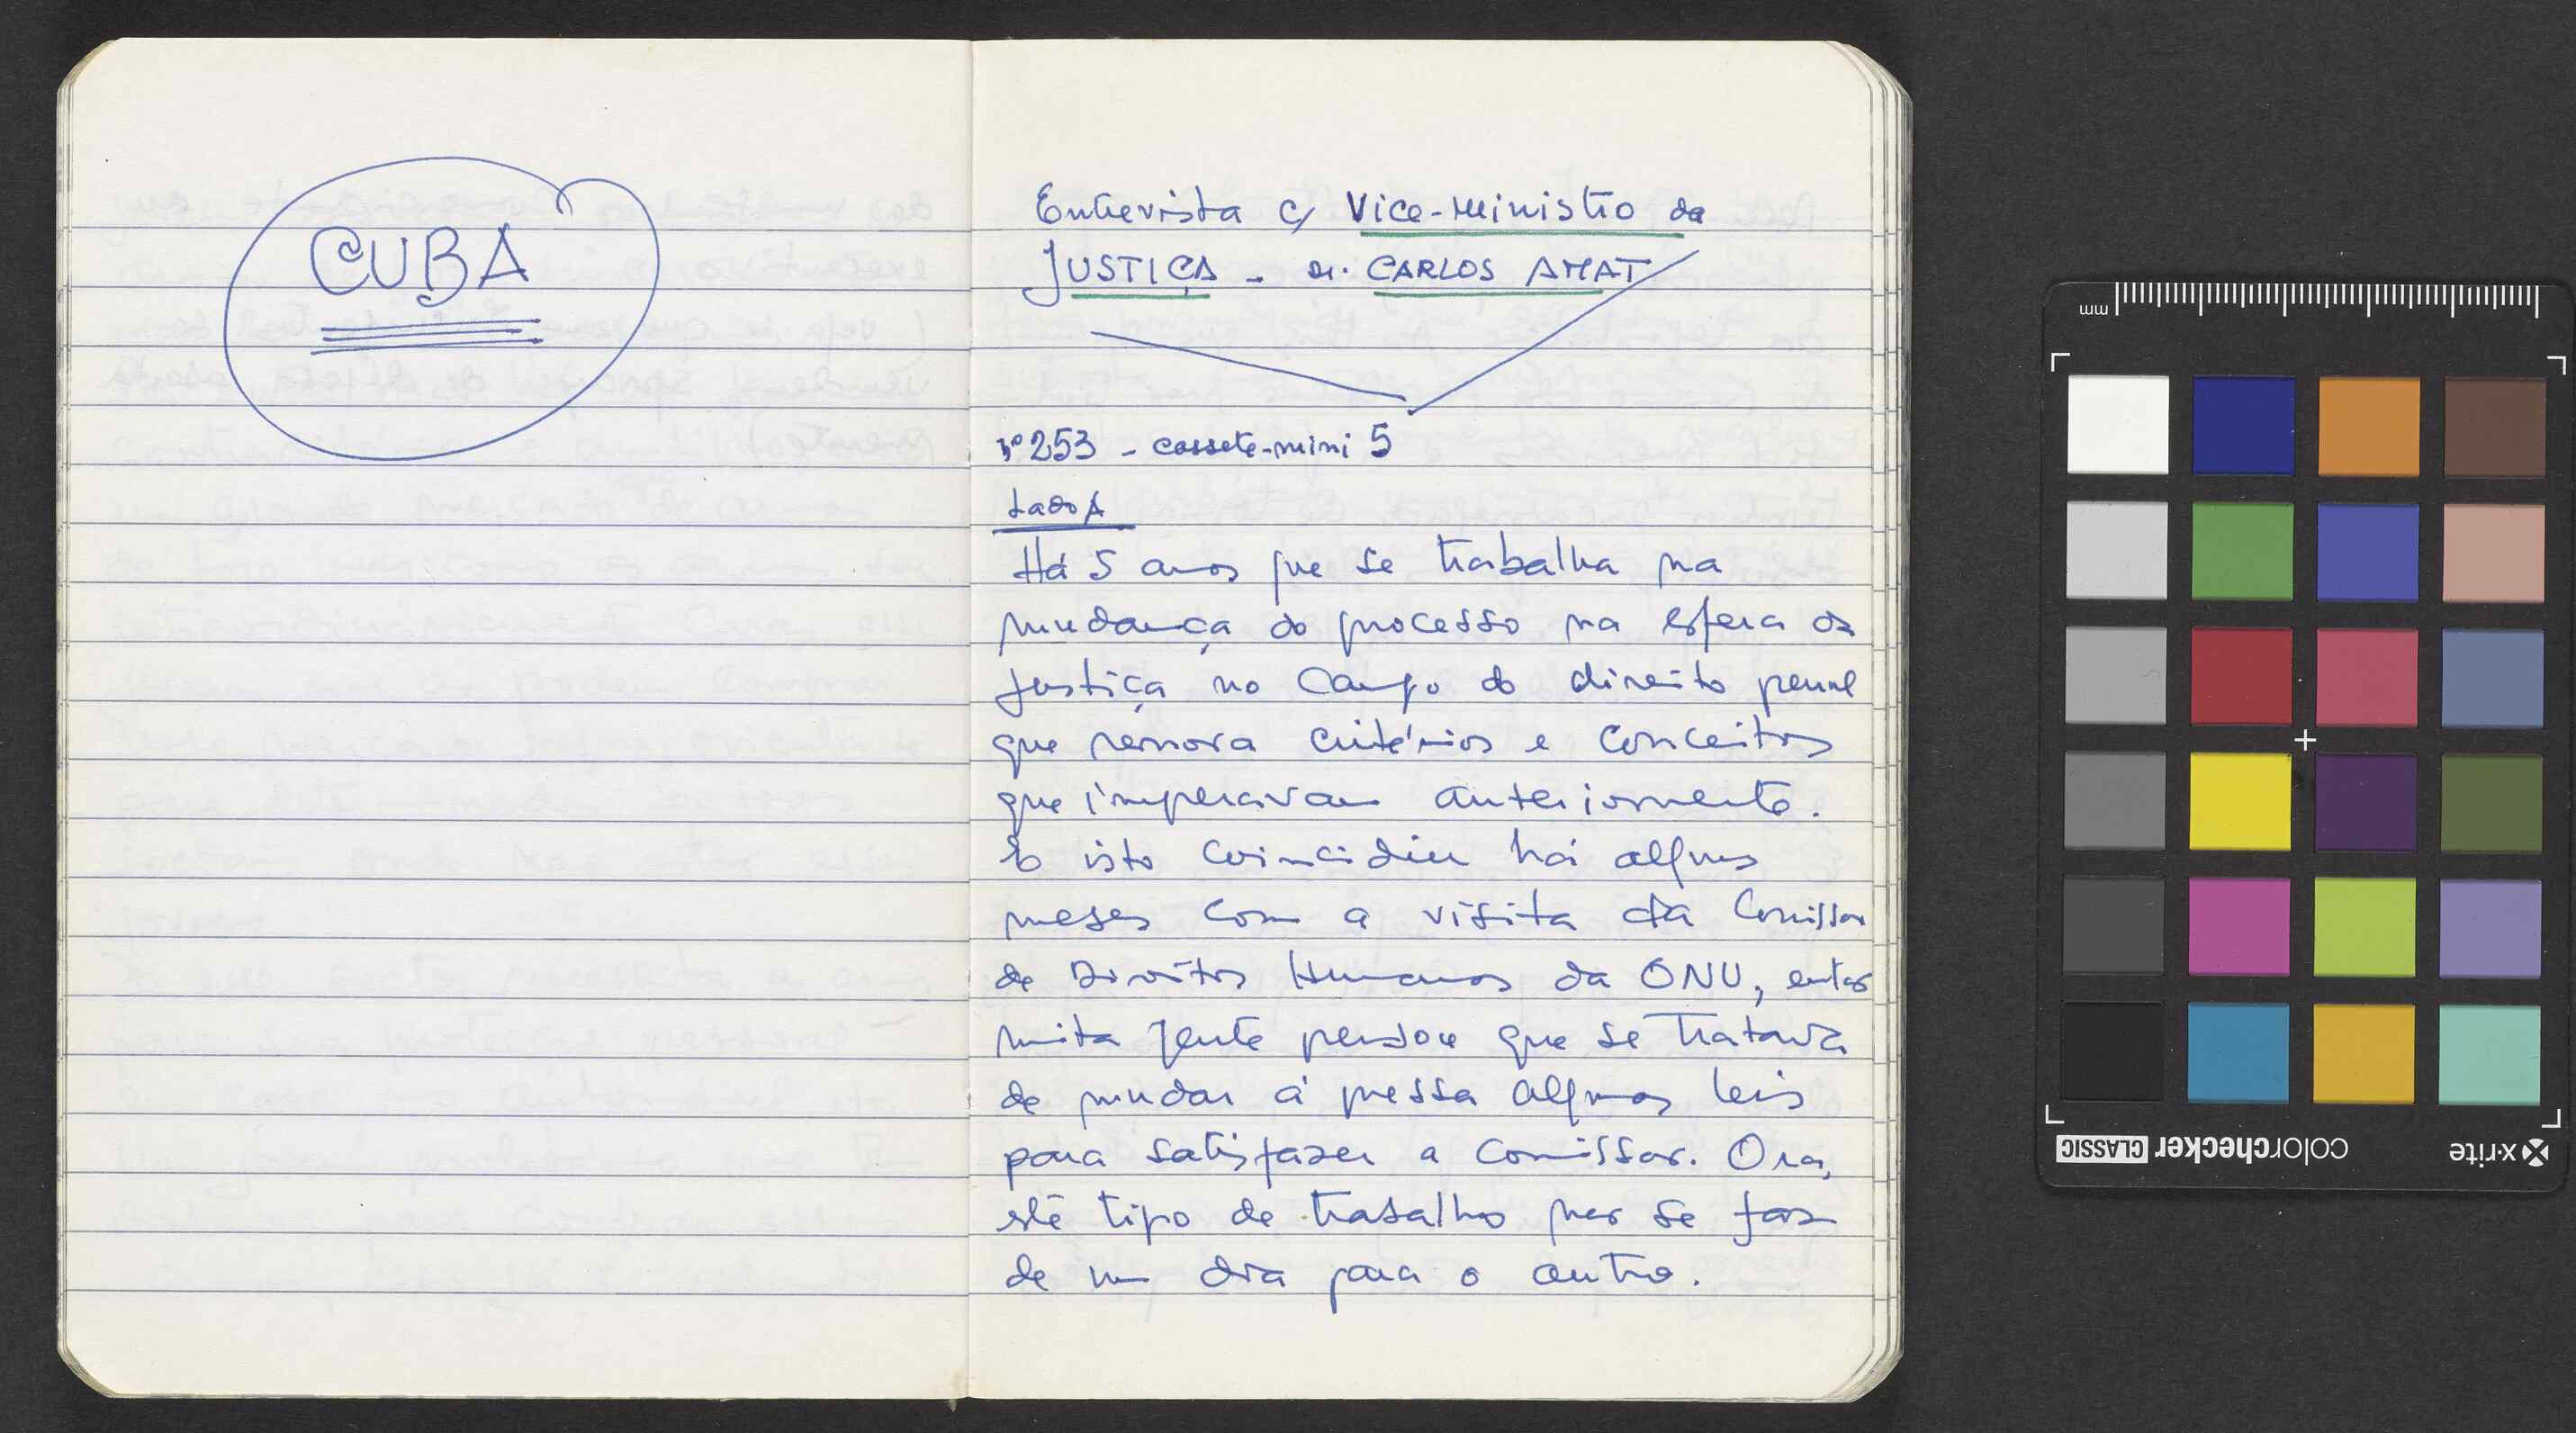 CUBA
Entrevista c/ Vice-Ministro da
JUSTIÇA - dr. CARLOS AMAT
nº 253 - cassete-mini 5
Lado A
Há 5 anos que se trabalha na
mudança do processo na esfera da
justiça no campo do direito penal
que renova critérios e conceitos
que imperavam anteriormente.
E isto coincidiu há alguns
meses com a visita da Comissão
de Direitos Humanos da ONU, então
muita gente pensou que se tratava
de mudar à pressa algumas leis
para satisfazer a comissão. Ora,
este tipo de trabalho não se faz
de um dia para o outro.
mm
x-rite
colorchecker CLASSIC